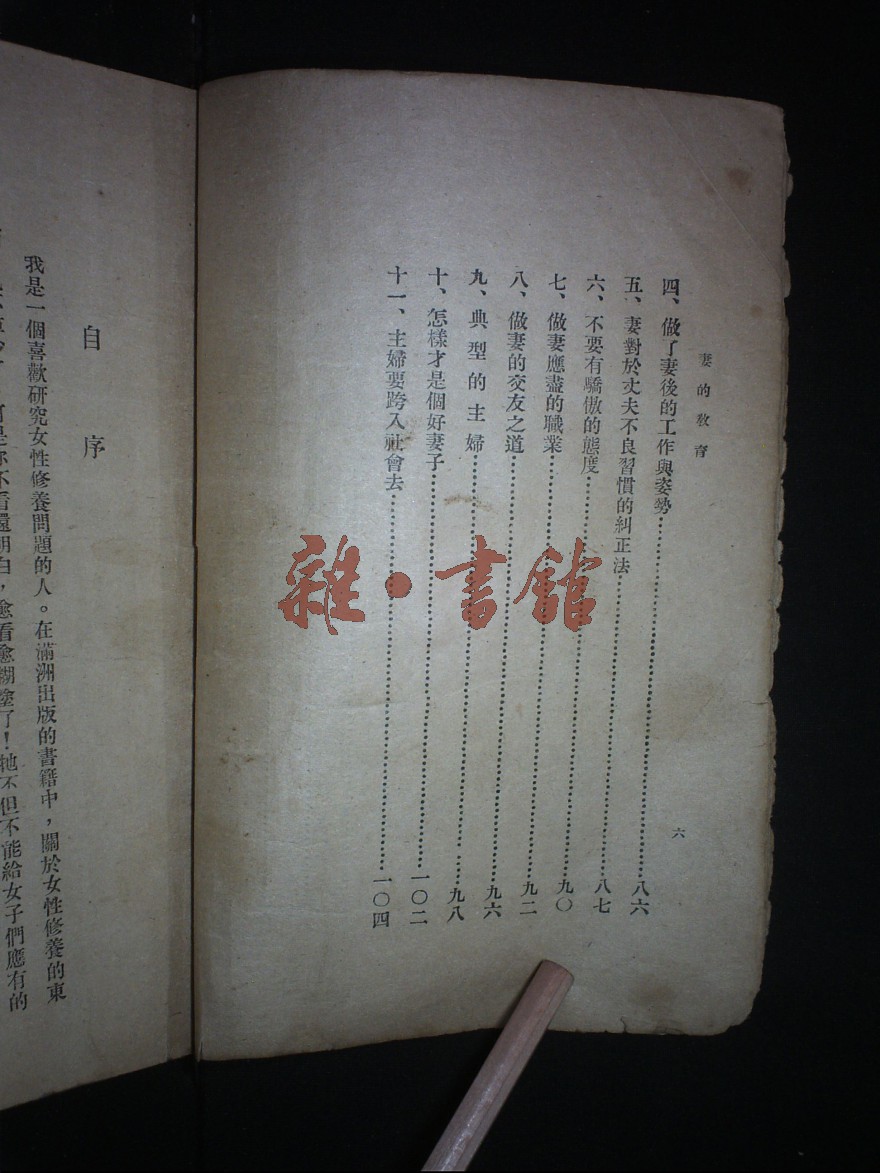 妻的教育
四、做了妻後的工作與姿勢……八六
五、妻對於丈夫不良習慣的糾正法……八七
六、不要有驕傲的態度……九〇
七、做妻應盡的職業……九二
八、做妻的交友之道……九六
九、典型的主婦……九八
十、怎樣才是個好妻子……一〇二
十一、主婦要跨入社會去……一〇四
六
雜·書館
自序
我是一個喜歡研究女性修養問題的人。在滿洲出版的書籍中，關於女性修養的東
不看還明白，愈看愈糊塗了！牠不但不能給女子們應有的